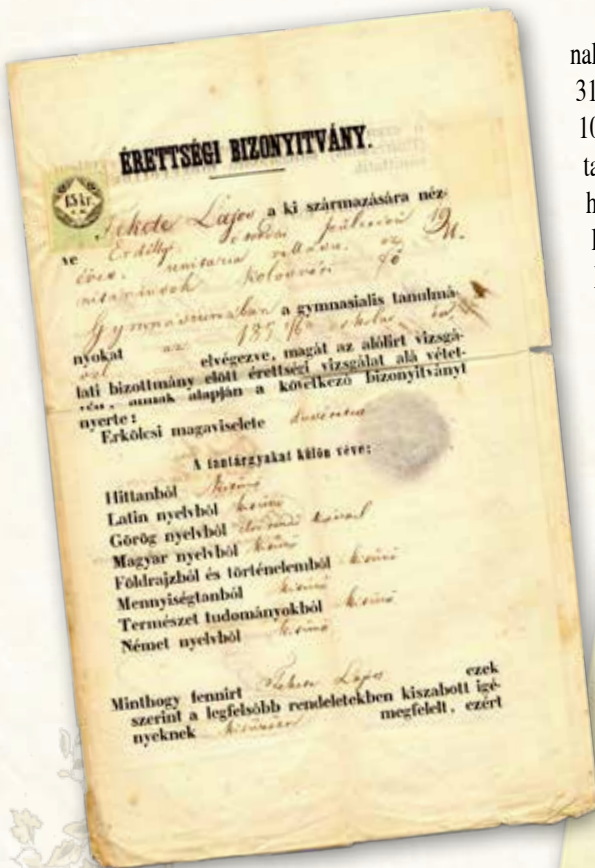 ÉRETTSÉGI BIZONYITVÁNY.
15 kr.
Fekete Lajos a ki származására néz-
ve Erdélyi születésű 19
éves, unitaria vallásu, az U-
nitáriusok Kolosvári fő
Gymnásiumában a gymnasialis tanulmá-
nyokat az iskolai
elvégezve, magát az alólirt vizsgá-
lati bizottmány előtt érettségi vizsgálat alá vétet-
vén, annak alapján a következő bizonyitványt
nyerte:
Erkölcsi magaviselete
A tantárgyakat külön véve:
Hittanból kitünő
Latin nyelvből kitünő
Görög nyelvből
Magyar nyelvből kitünő
Földrajzból és történelemből kitünő
Mennyiségtanból kitünő
Természet tudományokból kitünő
Német nyelvből kitünő
Minthogy fennirt Fekete Lajos ezek
szerint a legfelsőbb rendeletekben kiszabott igé-
nyeknek kitünően megfelelt, ezért
31
10